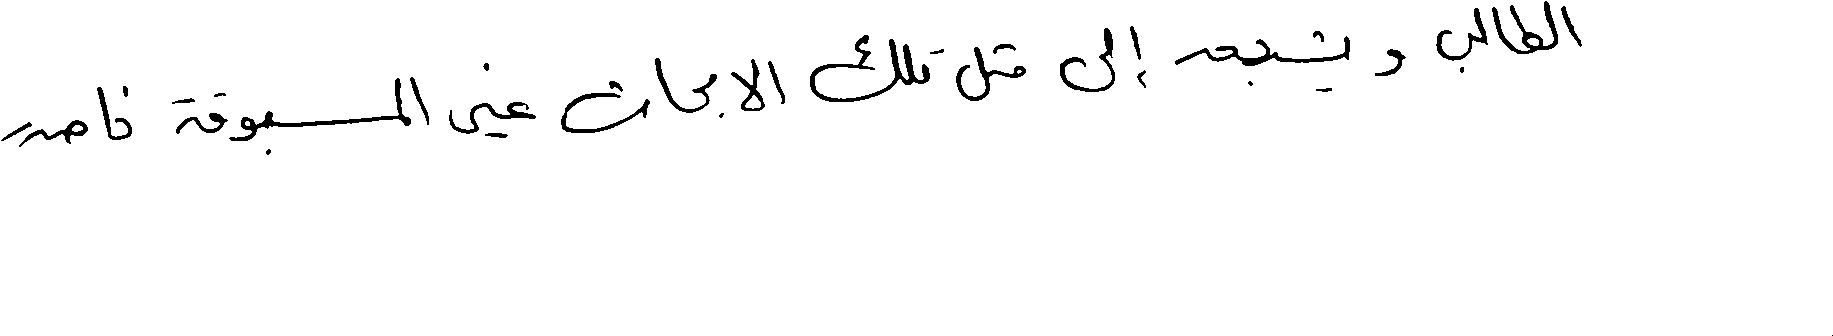 الطالب ويشجعه إلى مثل تلك الابحاث غير المسبوقة خاصه